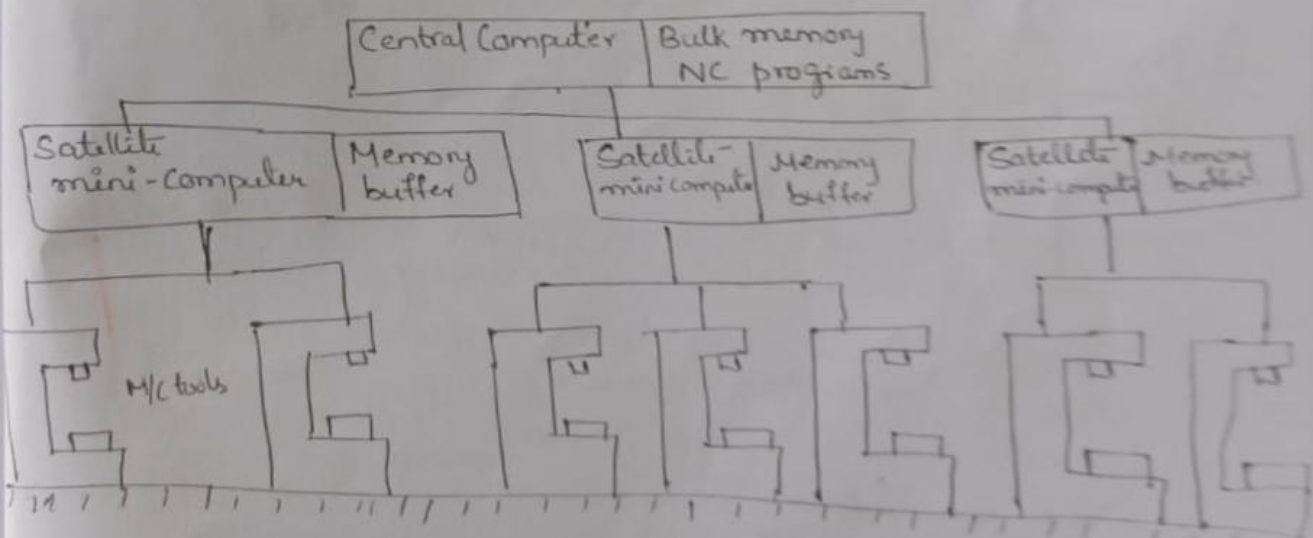 Central Computer
Bulk memory
NC programs
Satellite
mini-Computer
Memory
buffer
Satellite
mini compute
Memory
buffer
Satellite
mini compute
Memory
buffer
M/C tools